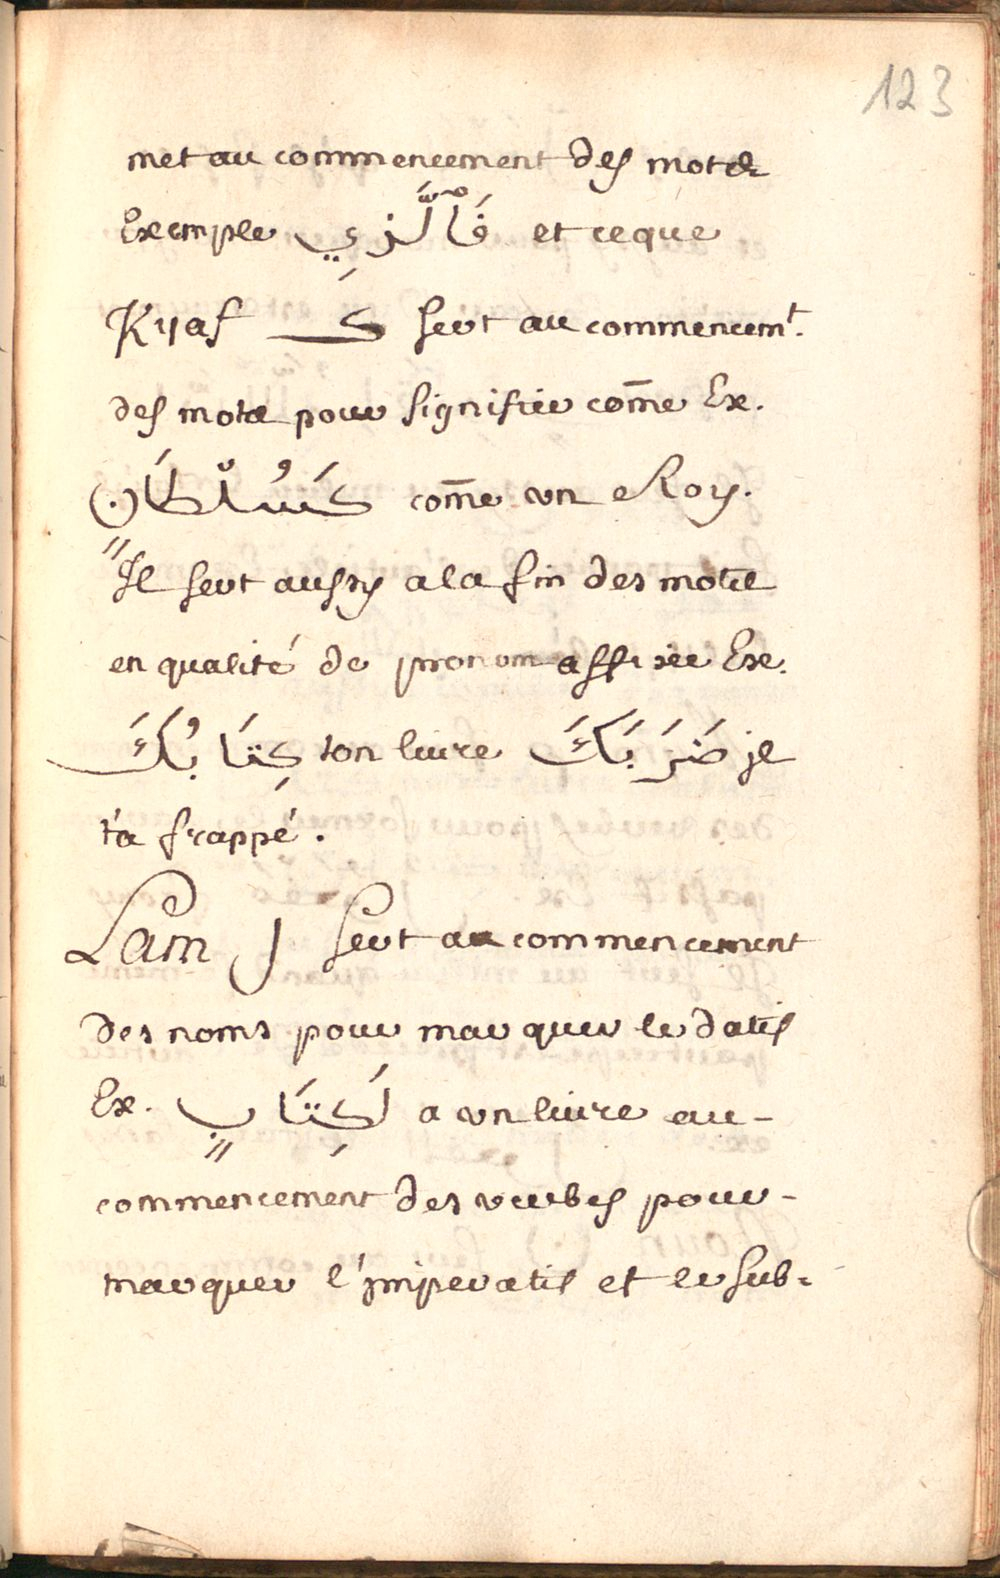 123
met au commencement des mots
Exemple فَاٌلَّزِي et ce que
Kyaf كـ sert au commencemt.
des mots pour signifier com̄e Ex.
كَسُلْطَانٍ com̄e un Roy.
Il sert aussy a la fin des mots
en qualité de pronom affixe Ex.
كِتَابُكَ ton livre ضَرَبَكَ il
t'a frappé.
Lam ل sert au commencement
des noms pour marquer le datif
Ex. لَكِتَابٍ a un livre au-
commencement des verbes pour-
marquer l'imperatif et le sub-